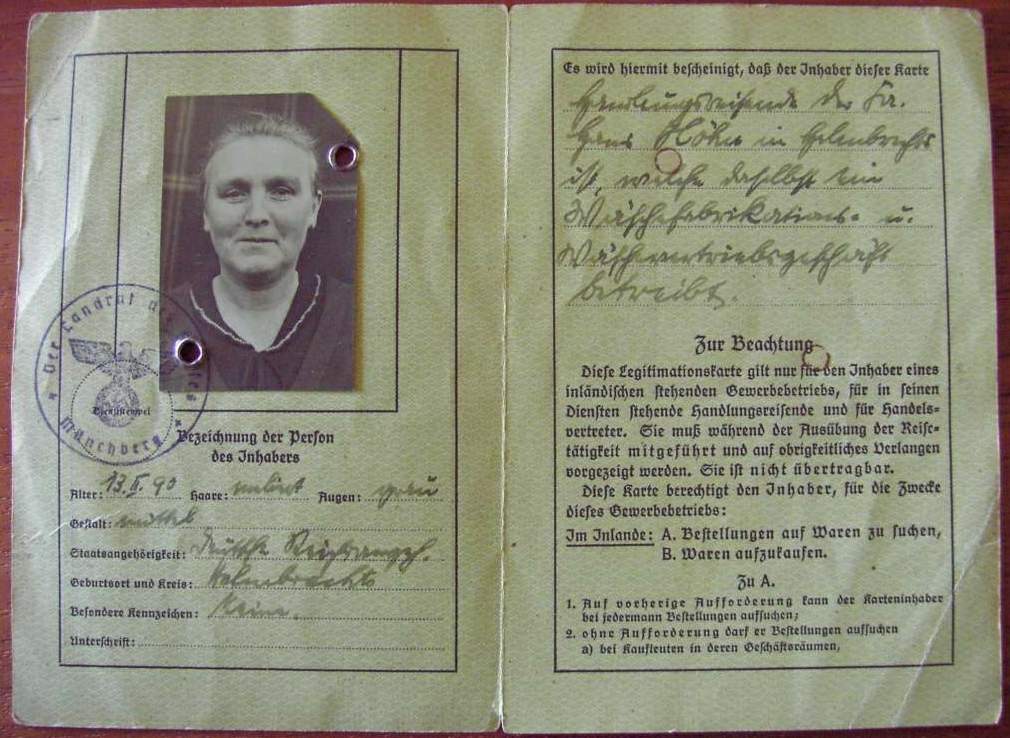 Der Landrat des Kreises
Münchberg
Dienststempel
Bezeichnung der Person
des Inhabers
Alter: 13.II.90 Haare: meliert Augen: grau
Gestalt: mittel
Staatsangehörigkeit: Deutsche Reichsangeh.
Geburtsort und Kreis: Helmbrechts
Besondere Kennzeichen: Keine.
Unterschrift:
Es wird hiermit bescheinigt, daß der Inhaber dieser Karte
Handlungsreisende der Fa.
Hans in Helmbrechts
ist, welche daselbst ein
Wäschefabrikations- u.
Wäschevertriebsgeschäft
betreibt.
Zur Beachtung
Diese Legitimationskarte gilt nur für den Inhaber eines
inländischen stehenden Gewerbebetriebs, für in seinen
Diensten stehende Handlungsreisende und für Handels-
vertreter. Sie muß während der Ausübung der Reise-
tätigkeit mitgeführt und auf obrigkeitliches Verlangen
vorgezeigt werden. Sie ist nicht übertragbar.
Diese Karte berechtigt den Inhaber, für die Zwecke
dieses Gewerbebetriebs:
Im Inlande: A. Bestellungen auf Waren zu suchen,
B. Waren aufzukaufen.
Zu A.
1. Auf vorherige Aufforderung kann der Karteninhaber
bei jedermann Bestellungen aufsuchen;
2. ohne Aufforderung darf er Bestellungen aufsuchen
a) bei Kaufleuten in deren Geschäftsräumen,